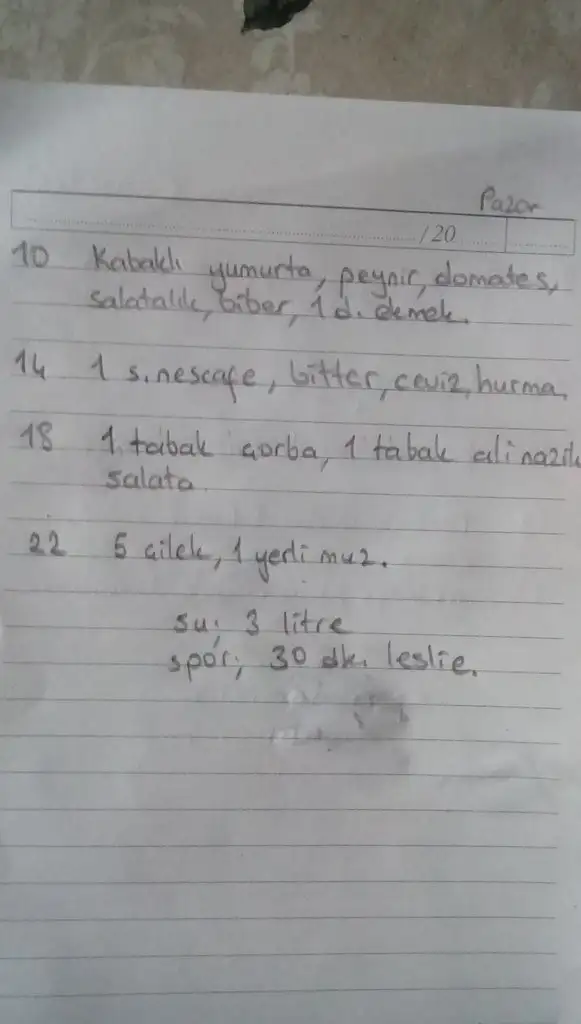 Pazar
/20
10 Kabaklı yumurta, peynir, domates,
salatalık, biber, 1 d. ekmek.
14 1 s. nescafe, bitter, ceviz, hurma,
18 1 tabak çorba, 1 tabak ali nazik
salata
22 5 çilek, 1 yerli muz.
su; 3 litre
spor; 30 dk. leslie.